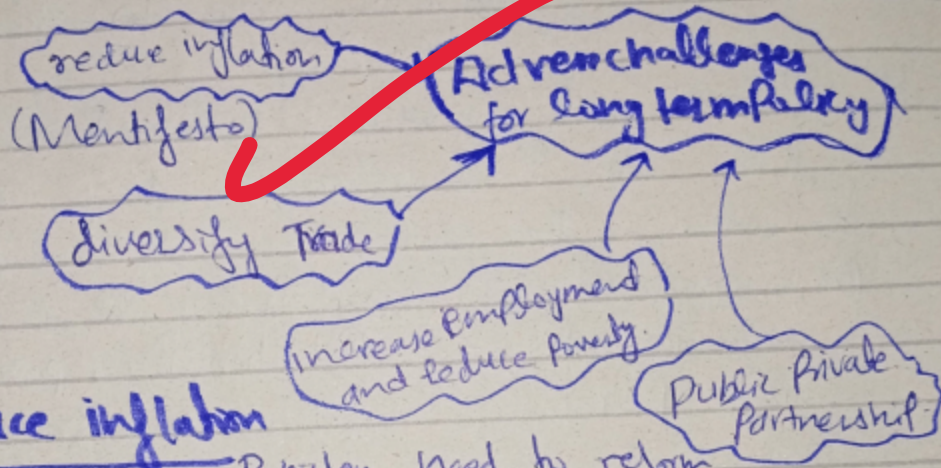 reduce inflation
(Mentifesto)
Adrem challenges
for long term Policy
diversify Trade
increase Employment
and reduce Poverty.
Public Private
Partnership.
ce inflation
need to reform